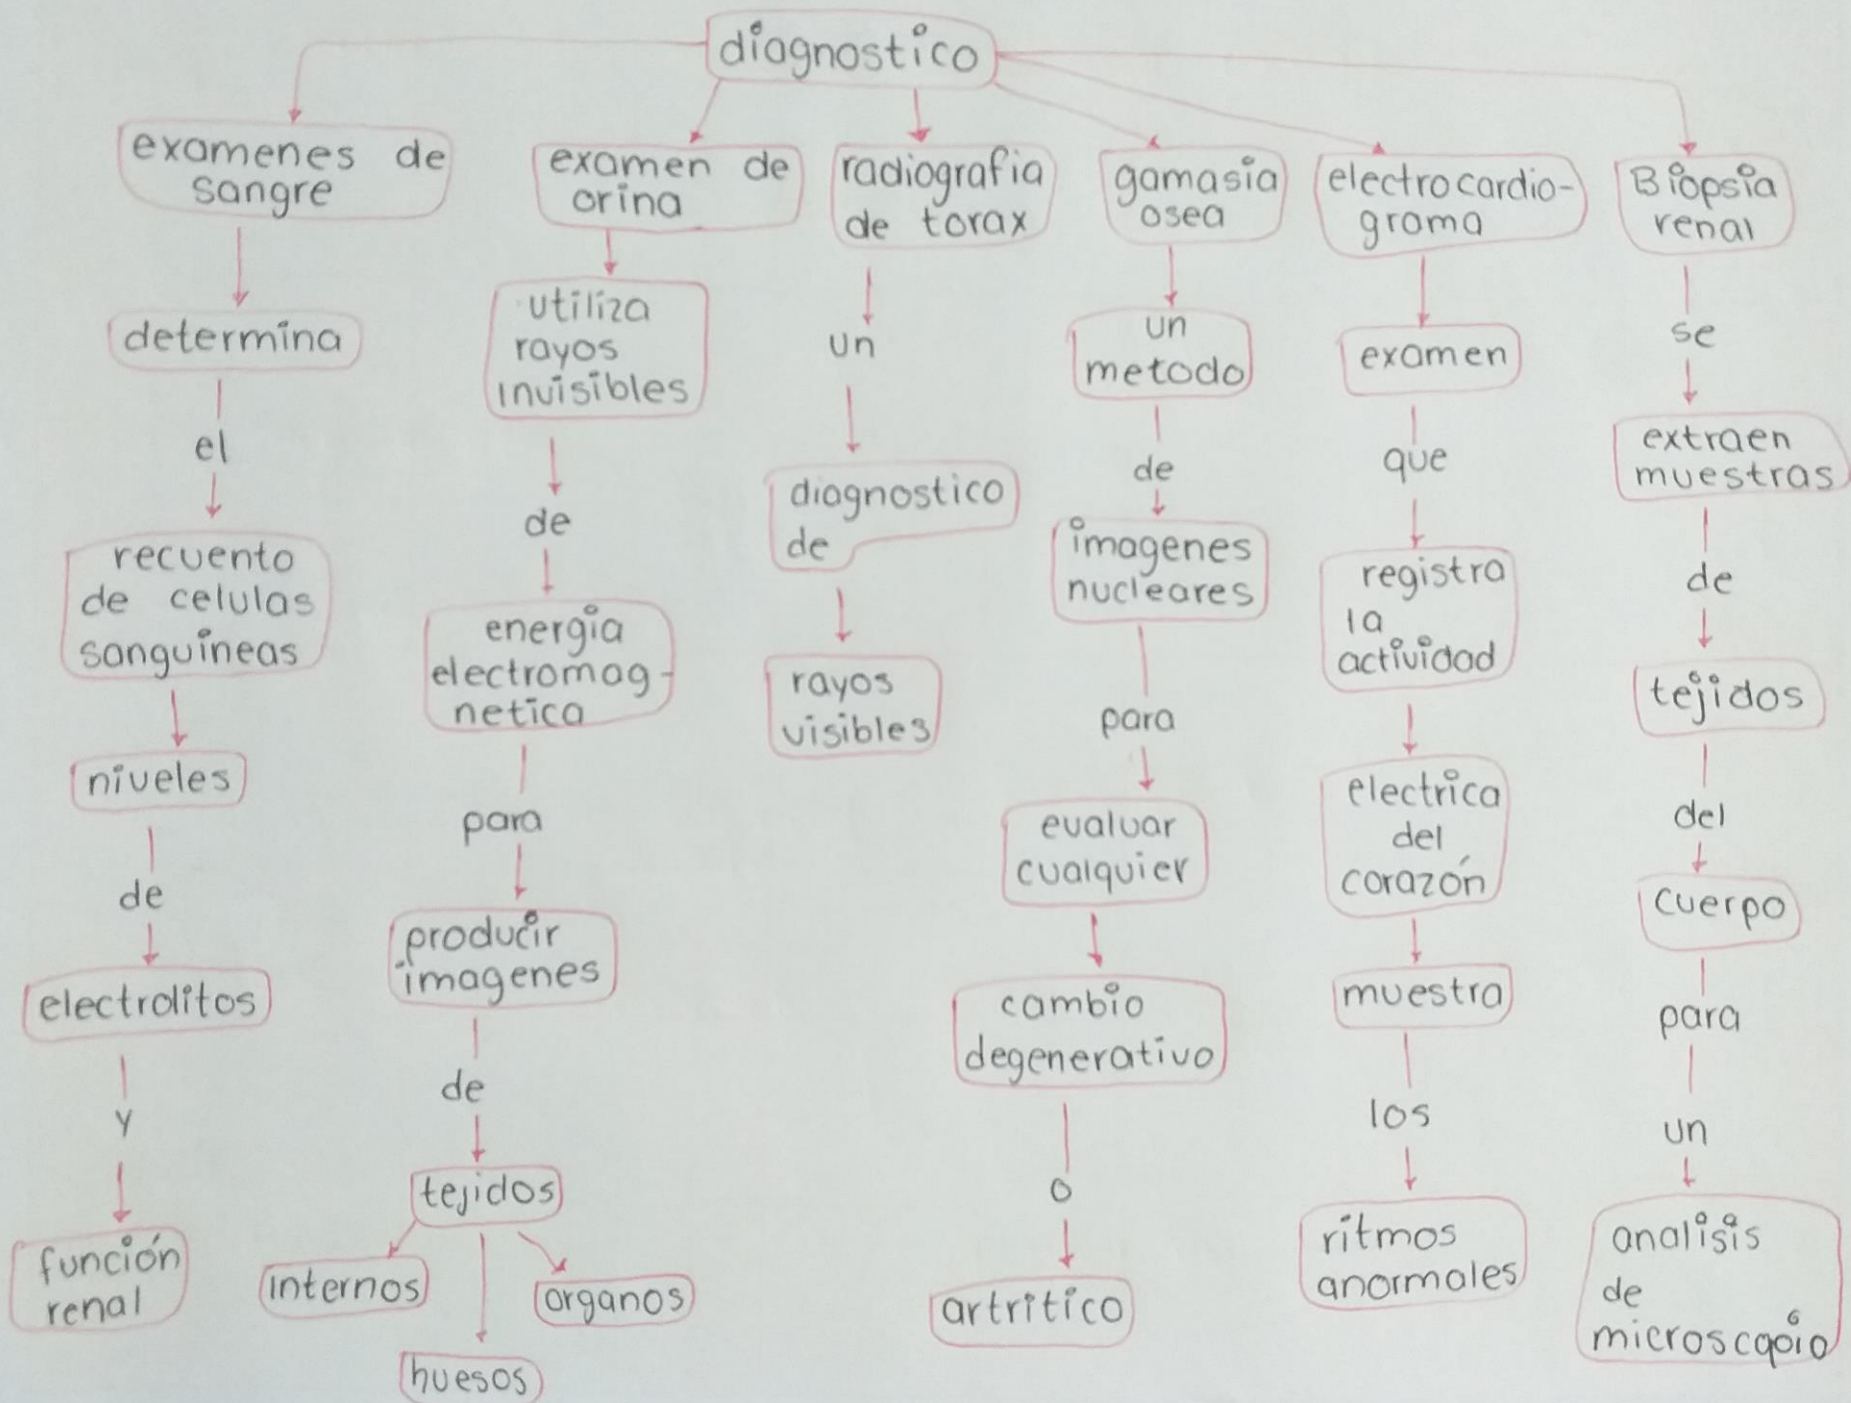 diagnostico
examenes de
sangre
determina
el
recuento
de celulas
sanguineas
niveles
de
electrolitos
y
función
renal
examen de
orina
utiliza
rayos
invisibles
de
energia
electromag-
netica
para
producir
imagenes
de
tejidos
internos
huesos
organos
radiografia
de torax
un
diagnostico
de
rayos
visibles
gamasia
osea
un
metodo
de
imagenes
nucleares
para
evaluar
cualquier
cambio
degenerativo
o
artritico
electrocardio-
grama
examen
que
registra
la
actividad
electrica
del
corazón
muestra
los
ritmos
anormales
Biopsia
renal
se
extraen
muestras
de
tejidos
del
cuerpo
para
un
analisis
de
microscopio